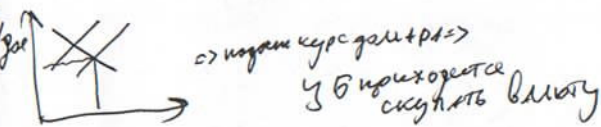 => падает курс доллара =>
ЦБ приходится
скупать валюту